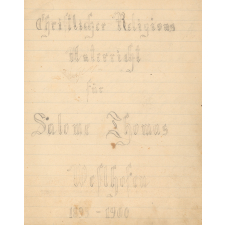 Christlicher Religions
Unterricht
für
Salome Thomas
Westhofen
- 1900